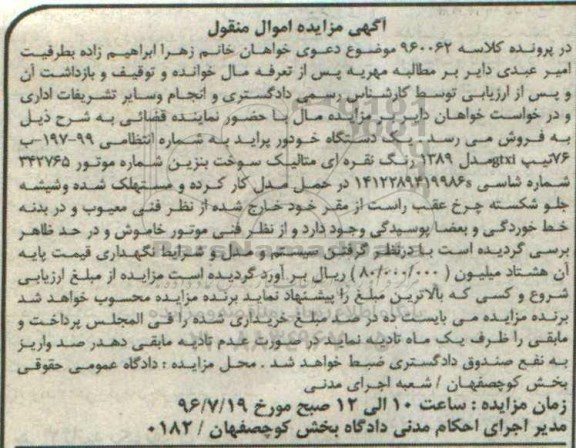 آگهی مزایده اموال منقول
در پرونده کلاسه ۹۶۰۰۶۲ موضوع دعوی خواهان خانم زهرا ابراهیم زاده بطرفیت
امیر عبدی دایر بر مطالبه مهریه پس از تعرفه مال خوانده و توقیف و بازداشت آن
و پس از ارزیابی توسط کارشناس رسمی دادگستری و انجام وسایر تشریفات اداری
و در خواست خواهان دایر بر مزایده مال با حضور نماینده قضائی به شرح ذیل
به فروش می رسد . یک دستگاه خودور پراید به شماره انتظامی ۹۹-۱۹۷-ب
۷۶تیپ gtxiمدل ۱۳۸۹ رنگ نقره ای متالیک سوخت بنزین شماره موتور ۳۴۲۷۶۵
شماره شاسی s۱۴۱۲۲۸۹۴۱۹۹۸۶ در حمل مدل کار کرده و مستهلک شده وشیشه
جلو شکسته چرخ عقب راست از مقر خود خارج شده از نظر فنی معیوب و در بدنه
خط خوردگی و بعضا پوسیدگی وجود دارد و از نظر فنی موتور خاموش و در حد ظاهر
برسی گردیده است با درنظر گرفتن سیستم و مدل و شرایط نگهداری قیمت پایه
آن هشتاد میلیون ( ۸۰/۰۰۰/۰۰۰ ) ریال بر آورد گردیده است مزایده از مبلغ ارزیابی
شروع و کسی که بالاترین مبلغ را پیشنهاد نماید برنده مزایده محسوب خواهد شد
برنده مزایده می بایست ده در صد مبلغ خریداری شده را فی المجلس پرداخت و
مابقی را ظرف یک ماه تادیه نماید در صورت عدم تادیه مابقی دهدر صد واریز
به نفع صندوق دادگستری ضبط خواهد شد . محل مزایده : دادگاه عمومی حقوقی
بخش کوچصفهان / شعبه اجرای مدنی
زمان مزایده : ساعت ۱۰ الی ۱۲ صبح مورخ ۹۶/۷/۱۹
مدیر اجرای احکام مدنی دادگاه بخش کوچصفهان / ۰۱۸۲